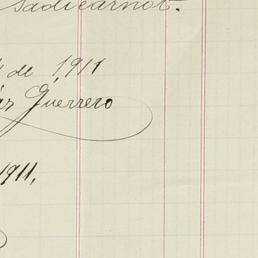 Sadicarnot.
de 1911
Guerrero
1911,